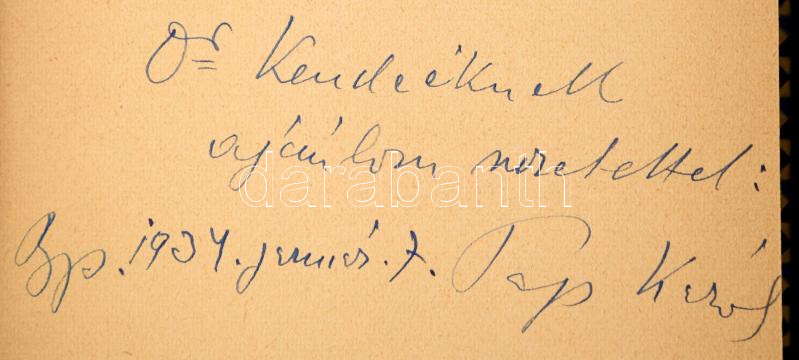 Dr Kendeéknek
ajánlom szeretettel:
darabanth
Bp. 1934. január. 7. Pap Károly